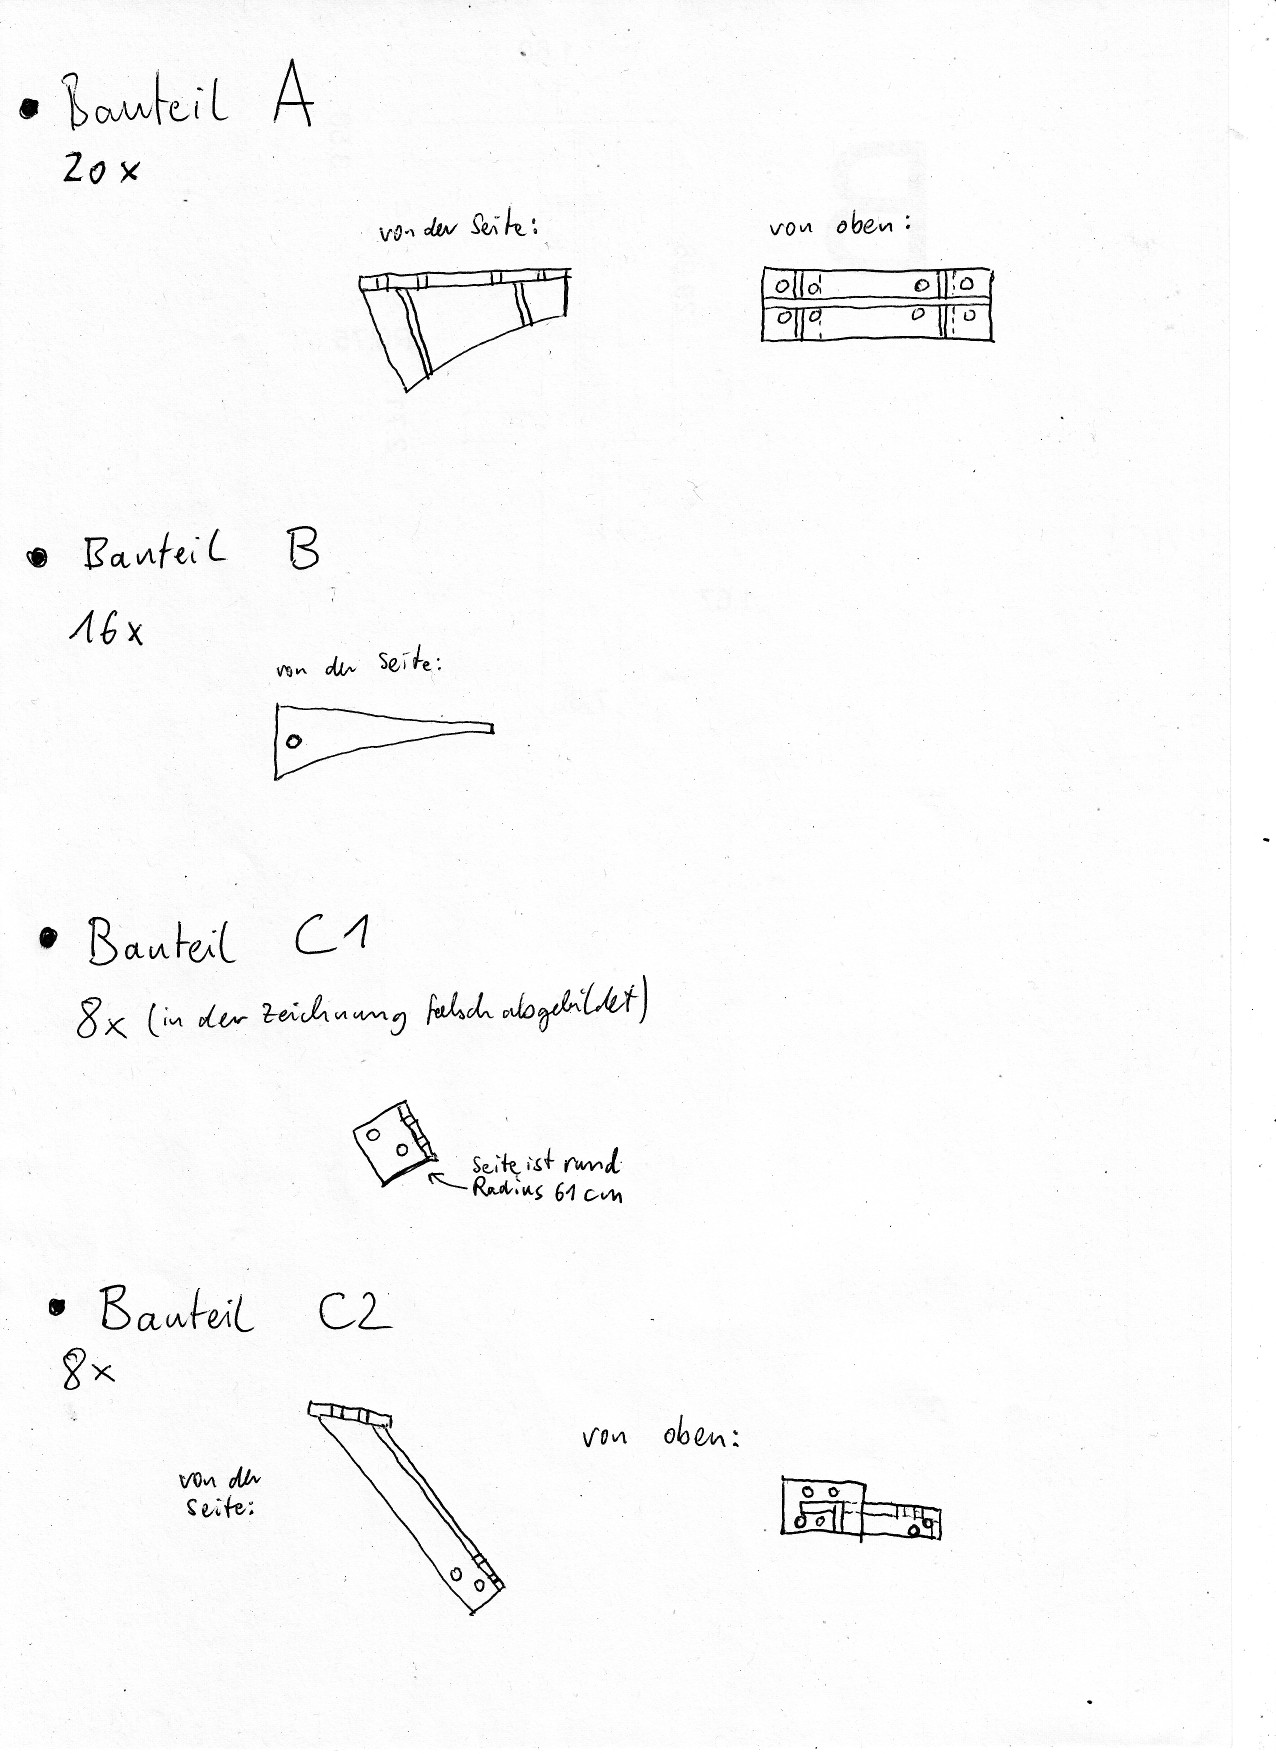 • Bauteil A
20x
von der Seite:
von oben:
• Bauteil B
16x
von der Seite:
• Bauteil C1
8x (in der Zeichnung falsch abgebildet)
Seite ist rund
Radius 61 cm
• Bauteil C2
8x
von der
Seite:
von oben: